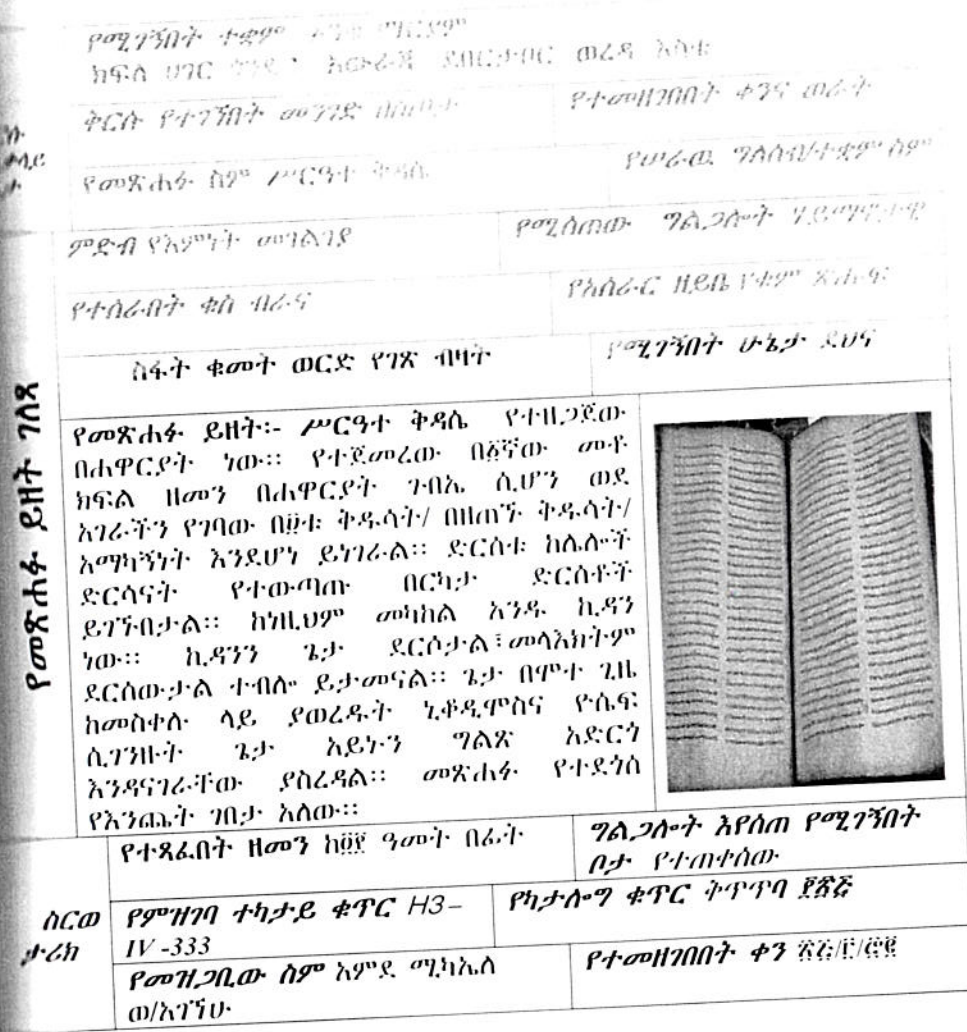 የሚገኝበት ተቋም ማርያም
ክፍለ ሀገር ጎንደር አውራጃ ደብርታቦር ወረዳ እስቴ
ቅርሱ የተገኘበት መንገድ በስጦታ
የተመዘገበበት ቀንና ወራት
የመጽሐፉ ስም ሥርዓተ ቅዳሴ
የሠራዉ ግለሰብ/ተቋም ስም
ምድብ የእምነት መገልገያ
የሚሰጠው ግልጋሎት ሃይማኖታዊ
የተሰራበት ቁስ ብራና
የአሰራር ዘይቤ የቁም ጽሑፍ
ስፋት ቁመት ወርድ የገጽ ብዛት
የሚገኝበት ሁኔታ ደህና
የመጽሐፉ ይዘት ገለጻ
የመጽሐፉ ይዘት፡- ሥርዓተ ቅዳሴ የተዘጋጀው
በሐዋርያት ነው፡፡ የተጀመረው በ፩ኛው መቶ
ክፍል ዘመን በሐዋርያት ጉበኤ ሲሆን ወደ
አገራችን የገባው በ፱ቱ ቅዱሳት/ በዘጠኙ ቅዱሳት/
አማካኝነት እንደሆነ ይነገራል፡፡ ድርሰቱ ከሌሎች
ድርሳናት የተውጣጡ በርካታ ድርሰቶች
ይገኙበታል፡፡ ከነዚህም መካከል አንዱ ኪዳን
ነው፡፡ ኪዳንን ጌታ ደርሶታል፣መላእክትም
ደርሰውታል ተብሎ ይታመናል፡፡ ጌታ በሞተ ጊዜ
ከመስቀሉ ላይ ያወረዱት ኒቆዲሞስና ዮሴፍ
ሲገንዙት ጌታ አይኑን ግልጽ አድርጎ
እንዳናገራቸው ያስረዳል፡፡ መጽሐፉ የተደጎሰ
የእንጨት ገበታ አለው፡፡
የተጻፈበት ዘመን ዓመት በፊት
ግልጋሎት እየሰጠ የሚገኝበት
ቦታ የተጠቀሰው
ስርወ
ታሪክ
የምዝገባ ተካታይ ቁጥር H3–
IV -333
የካታሎግ ቁጥር ቅጥጥባ
የመዝጋቢው ስም አምደ ሚካኤለ
ወ/አገኘሁ
የተመዘገበበት ቀን